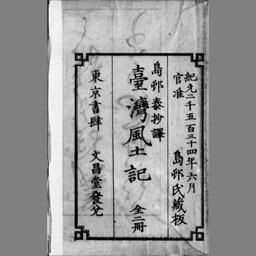 紀元二千五百三十四年六月
官准
島邨氏藏板
島邨泰抄譯
臺灣風土記
全二冊
東京書肆
文昌堂發兌